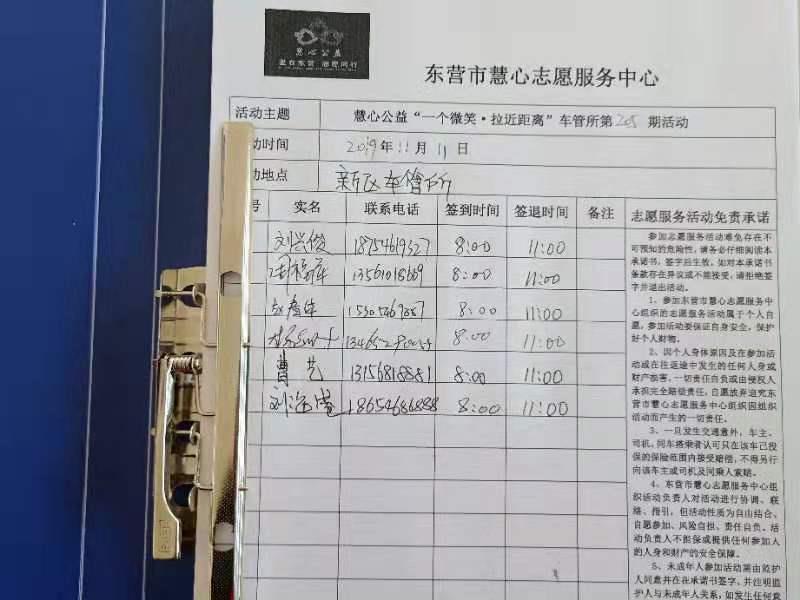 慧心公益
东营市慧心志愿服务中心
活动主题 慧心公益“一个微笑·拉近距离”车管所第205期活动
动时间 2019年11月11日
动地点 新区车管所
号 实名 联系电话 签到时间 签退时间 备注 志愿服务活动免责承诺
刘兴俊 18754619327 8:00 11:00
13561018669 8:00 11:00
8:00 11:00
8:00 11:00
曹艺 13156818881 8:00 11:00
18654686888 8:00 11:00
参加志愿服务活动难免存在不
可预知的危险性,请务必仔细阅读本
承诺书,签字后生效,如对本承诺书
条款存在异议或不能接受,请拒绝签
字并退出活动。
1、参加东营市慧心志愿服务中
心组织的志愿服务活动属于个人自
愿,参加活动要保证自身安全,保护
好个人财物。
2、因个人身体原因及在参加活
动或在往返途中发生的任何人身或
财产损害,一切责任自负或由侵权人
承担完全赔偿责任,自愿放弃追究东
营市慧心志愿服务中心组织因组织
活动而产生的一切责任。
3、一旦发生交通意外,车主、
司机、同车搭乘者认可只在该车已投
保的保险范围内接受赔偿,不得另行
向该车主或司机及同乘人索赔。
4、东营市慧心志愿服务中心组
织活动负责人对活动进行协调、联
络、指引,但活动性质为自由结合、
自愿参加、风险自担、责任自负。活
动负责人不能保证或提供任何参加人
的人身和财产的安全保障。
5、未成年人参加活动需由监护
人同意并在承诺书签字,并注明监
护人与未成年人关系,如发生任何意